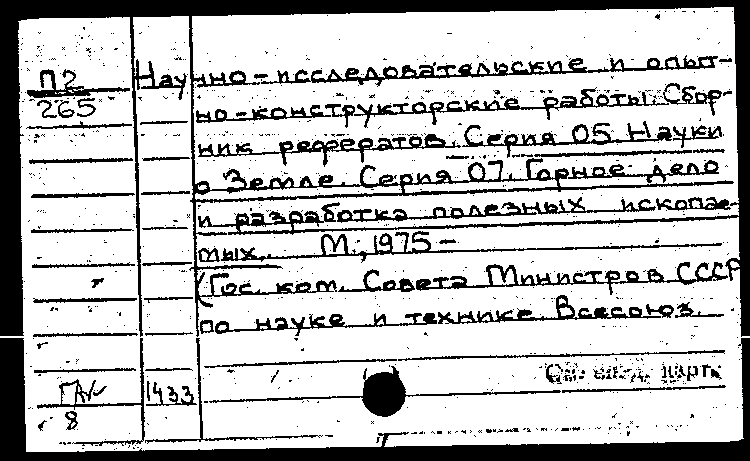 П2
265
Научно-исследовательские и опыт-
но-конструкторские работы. Сбор-
ник рефератов. Серия 05. Науки
о Земле. Серия 07. Горное дело
и разработка полезных ископае-
мых. М., 1975 –
(Гос. ком. Совета Министров СССР
по науке и технике. Всесоюз.
См. след. карт.
1433
8